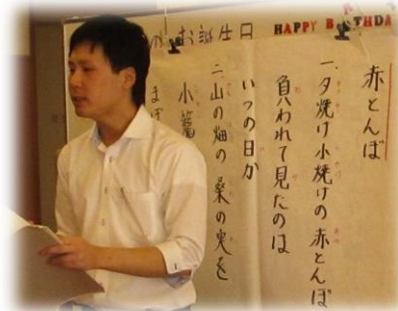 お誕生日
HAPPY B RTHDA
赤とんぼ
一、夕焼け小焼けの赤とんぼ
負われて見たのは
いつの日か
二、山の畑の桑の実を
小籠
まぼ